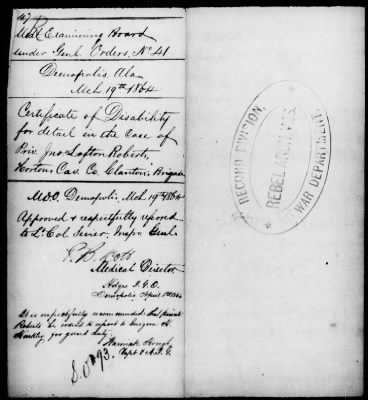 Med. Examining Board
under Genl. Orders, No 41
Demopolis, Ala
Mch 19th 1864
Certificate of Disability
for detail in the Case of
Priv. Jno Lofton Roberts,
Hortons Cav. Co. Clanton's Brigade
M.D.O. Demopolis, Mch 19th 1864
Approved & respectfully referred
to Lt Col. Insp. Genl.
P. B. Scott
Medical Director
Hdqrs
Demopolis April 1st 1864
It is respectfully recommended that private
Roberts be ordered to report to Surgeon
for guard duty
Hannah Hough
Capt & A.I.G.
RECORD DIVISION,
REBEL ARCHIVES,
WAR DEPARTMENT.